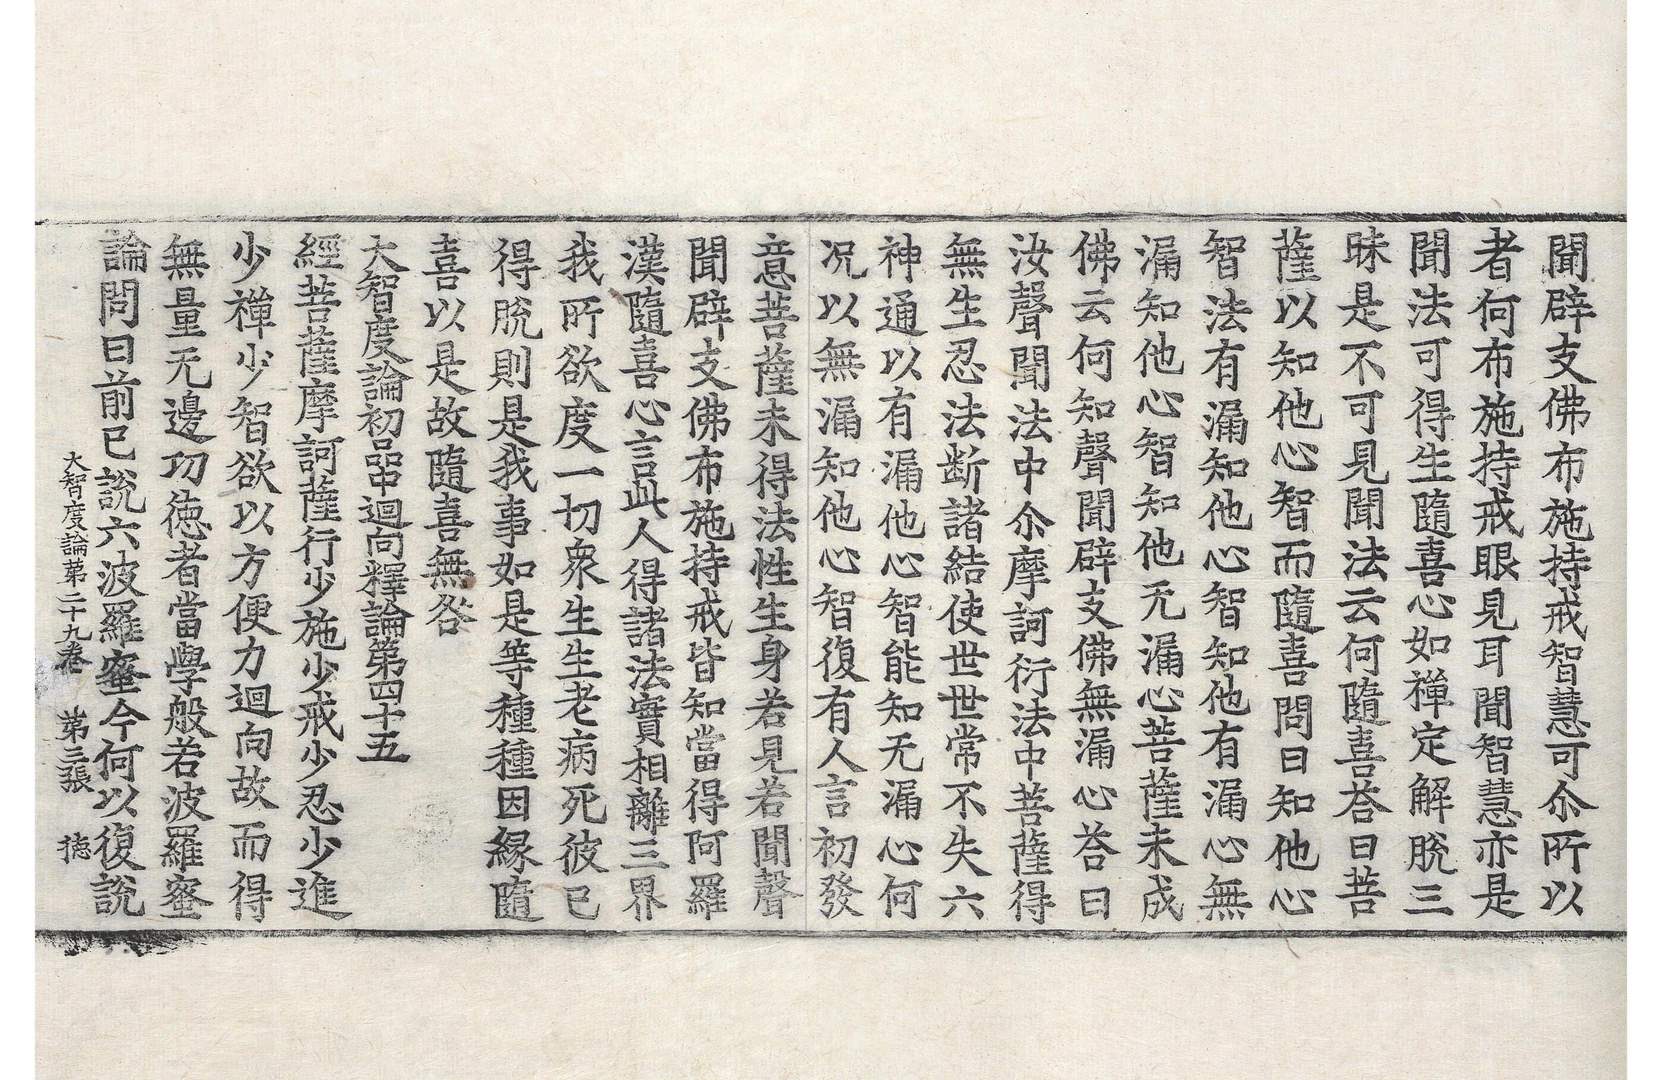 聞辟支佛布施持戒智慧可尒所以
者何布施持戒眼見耳聞智慧亦是
聞法可得生隨喜心如禪定解脫三
昧是不可見聞法云何隨喜荅曰菩
薩以知他心智而隨喜問曰知他心
智法有漏知他心智知他有漏心無
漏知他心智知他无漏心菩薩未成
佛云何知聲聞辟支佛無漏心荅曰
汝聲聞法中尒摩訶衍法中菩薩得
無生忍法断諸結使世世常不失六
神通以有漏他心智能知无漏心何
況以無漏知他心智復有人言初發
意菩薩未得法性生身若見若聞聲
聞辟支佛布施持戒皆知當得阿羅
漢隨喜心言此人得諸法實相離三界
我所欲度一切衆生生老病死彼已
得脫則是我事如是等種種因緣隨
喜以是故隨喜無咎
大智度論初品中迴向釋論第四十五
經菩薩摩訶薩行少施少戒少忍少進
少禪少智欲以方便力迴向故而得
無量无邊功德者當學般若波羅蜜
論問曰前已說六波羅蜜今何以復說
大智度論第二十九卷 第三張 德